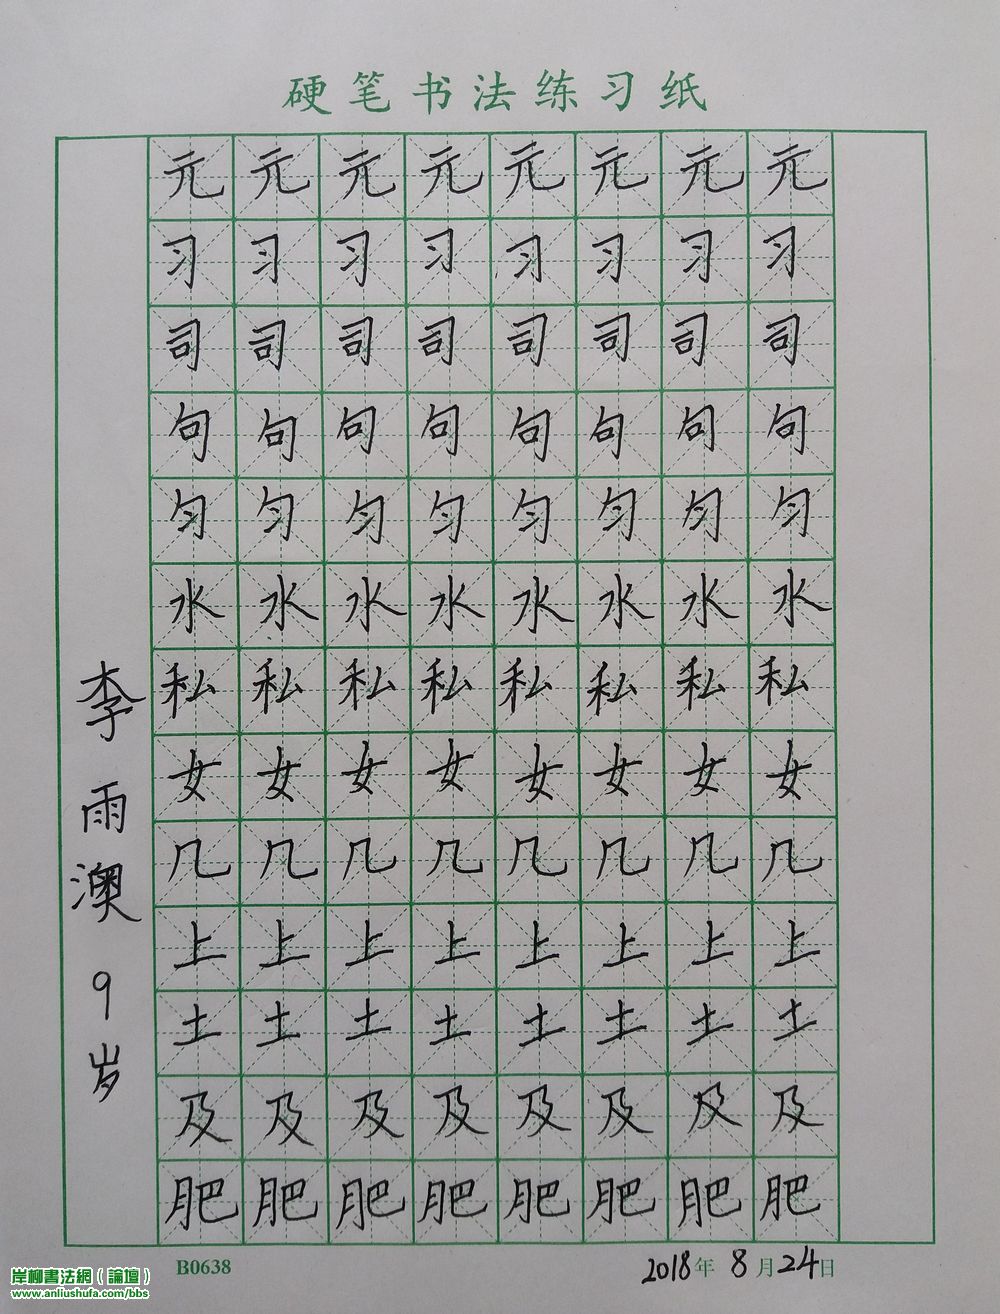 硬笔书法练习纸
元元元元元元元元
习习习习习习习习
司司司司司司司司
句句句句句句句句
匀匀匀匀匀匀匀匀
水水水水水水水水
私私私私私私私私
女女女女女女女女
几几几几几几几几
上上上上上上上上
土土土土土土土土
及及及及及及及及
肥肥肥肥肥肥肥肥
李雨澳 9岁
B0638
2018年8月24日
岸柳書法網(論壇)
www.anliushufa.com/bbs